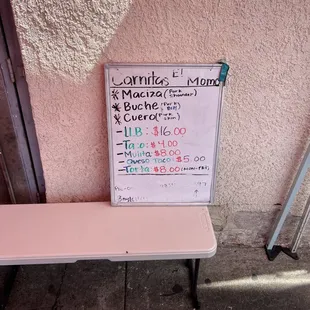 Carnitas El Momo
* Maciza (Pork Shoulder)
* Buche (Pork Belly)
* Cuero (Pork Skin)
- LB: $16.00
- Taco: $4.00
- Mulita: $8.00
- Queso Taco: $5.00
- Torta: $8.00 (MON-FRI)